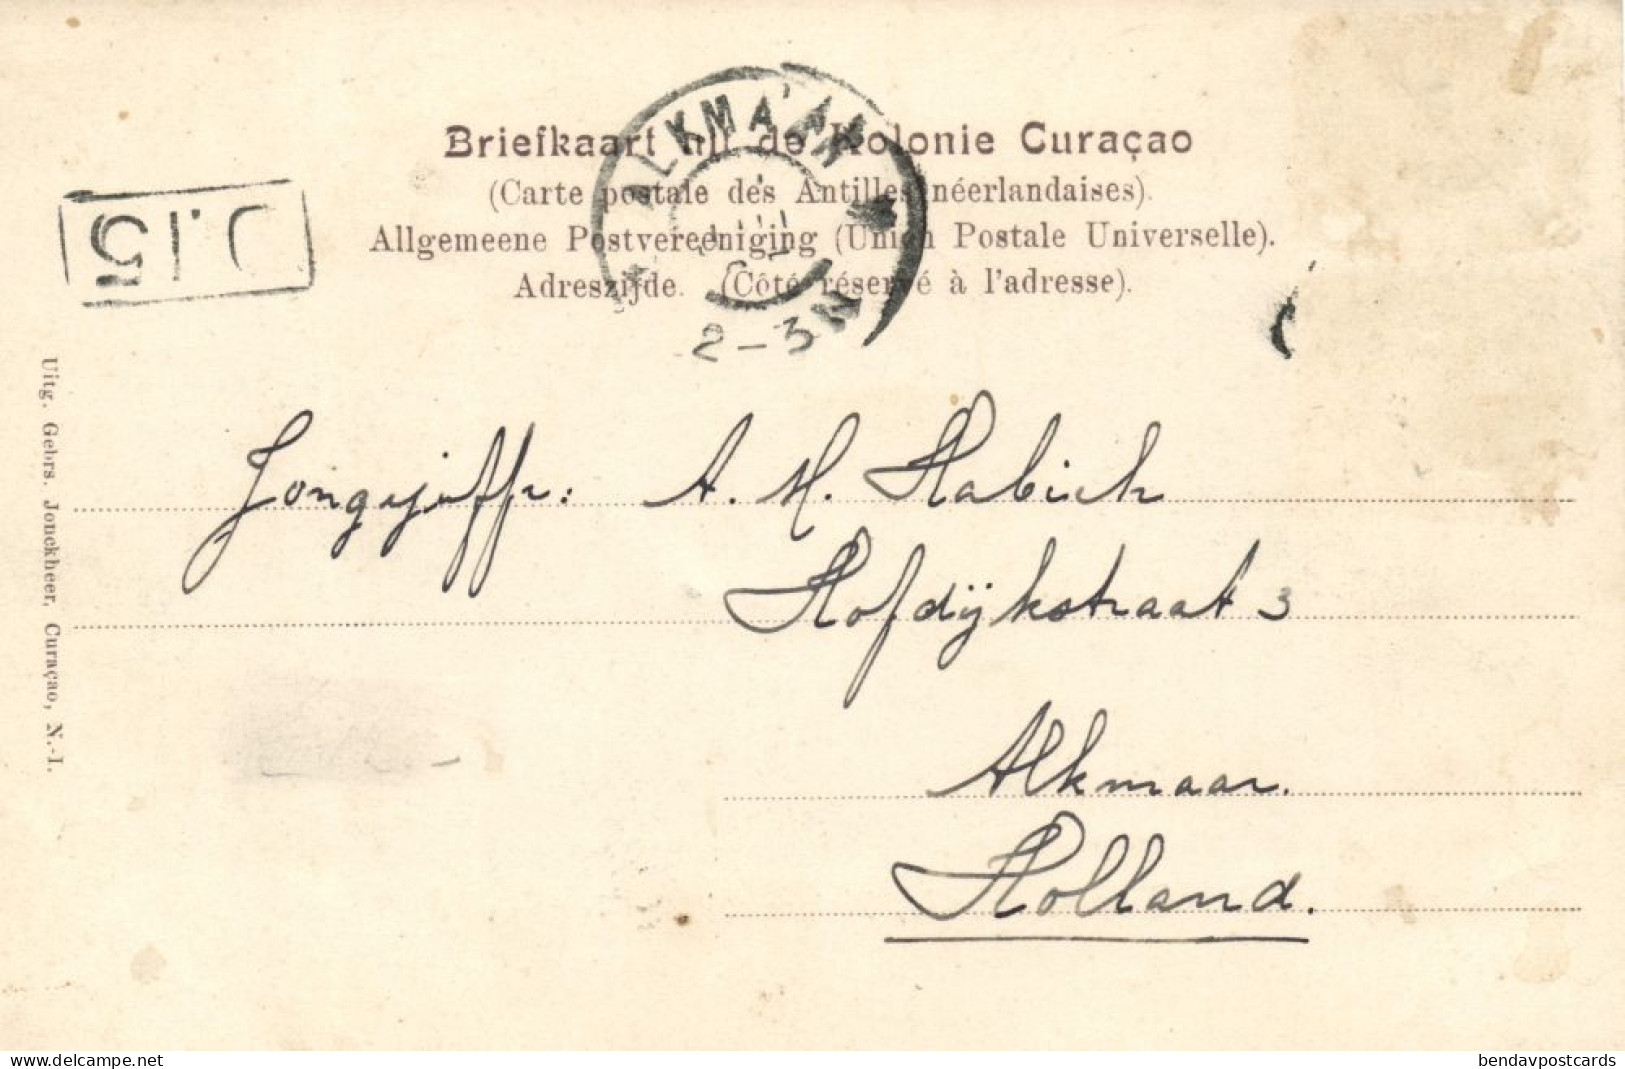 Briefkaart uit de Kolonie Curaçao
(Carte postale des Antilles néerlandaises).
Allgemeene Postvereeniging (Union Postale Universelle).
Adreszijde. (Côté réservé à l'adresse).
ALKMAAR
2-3N
J.15
Uitg. Gebrs. Jonckheer, Curaçao, N.-I.
Jongejuffr: A. H. Habich
Hofdijkstraat 3
Alkmaar.
Holland.
www.delcampe.net
bendavpostcards